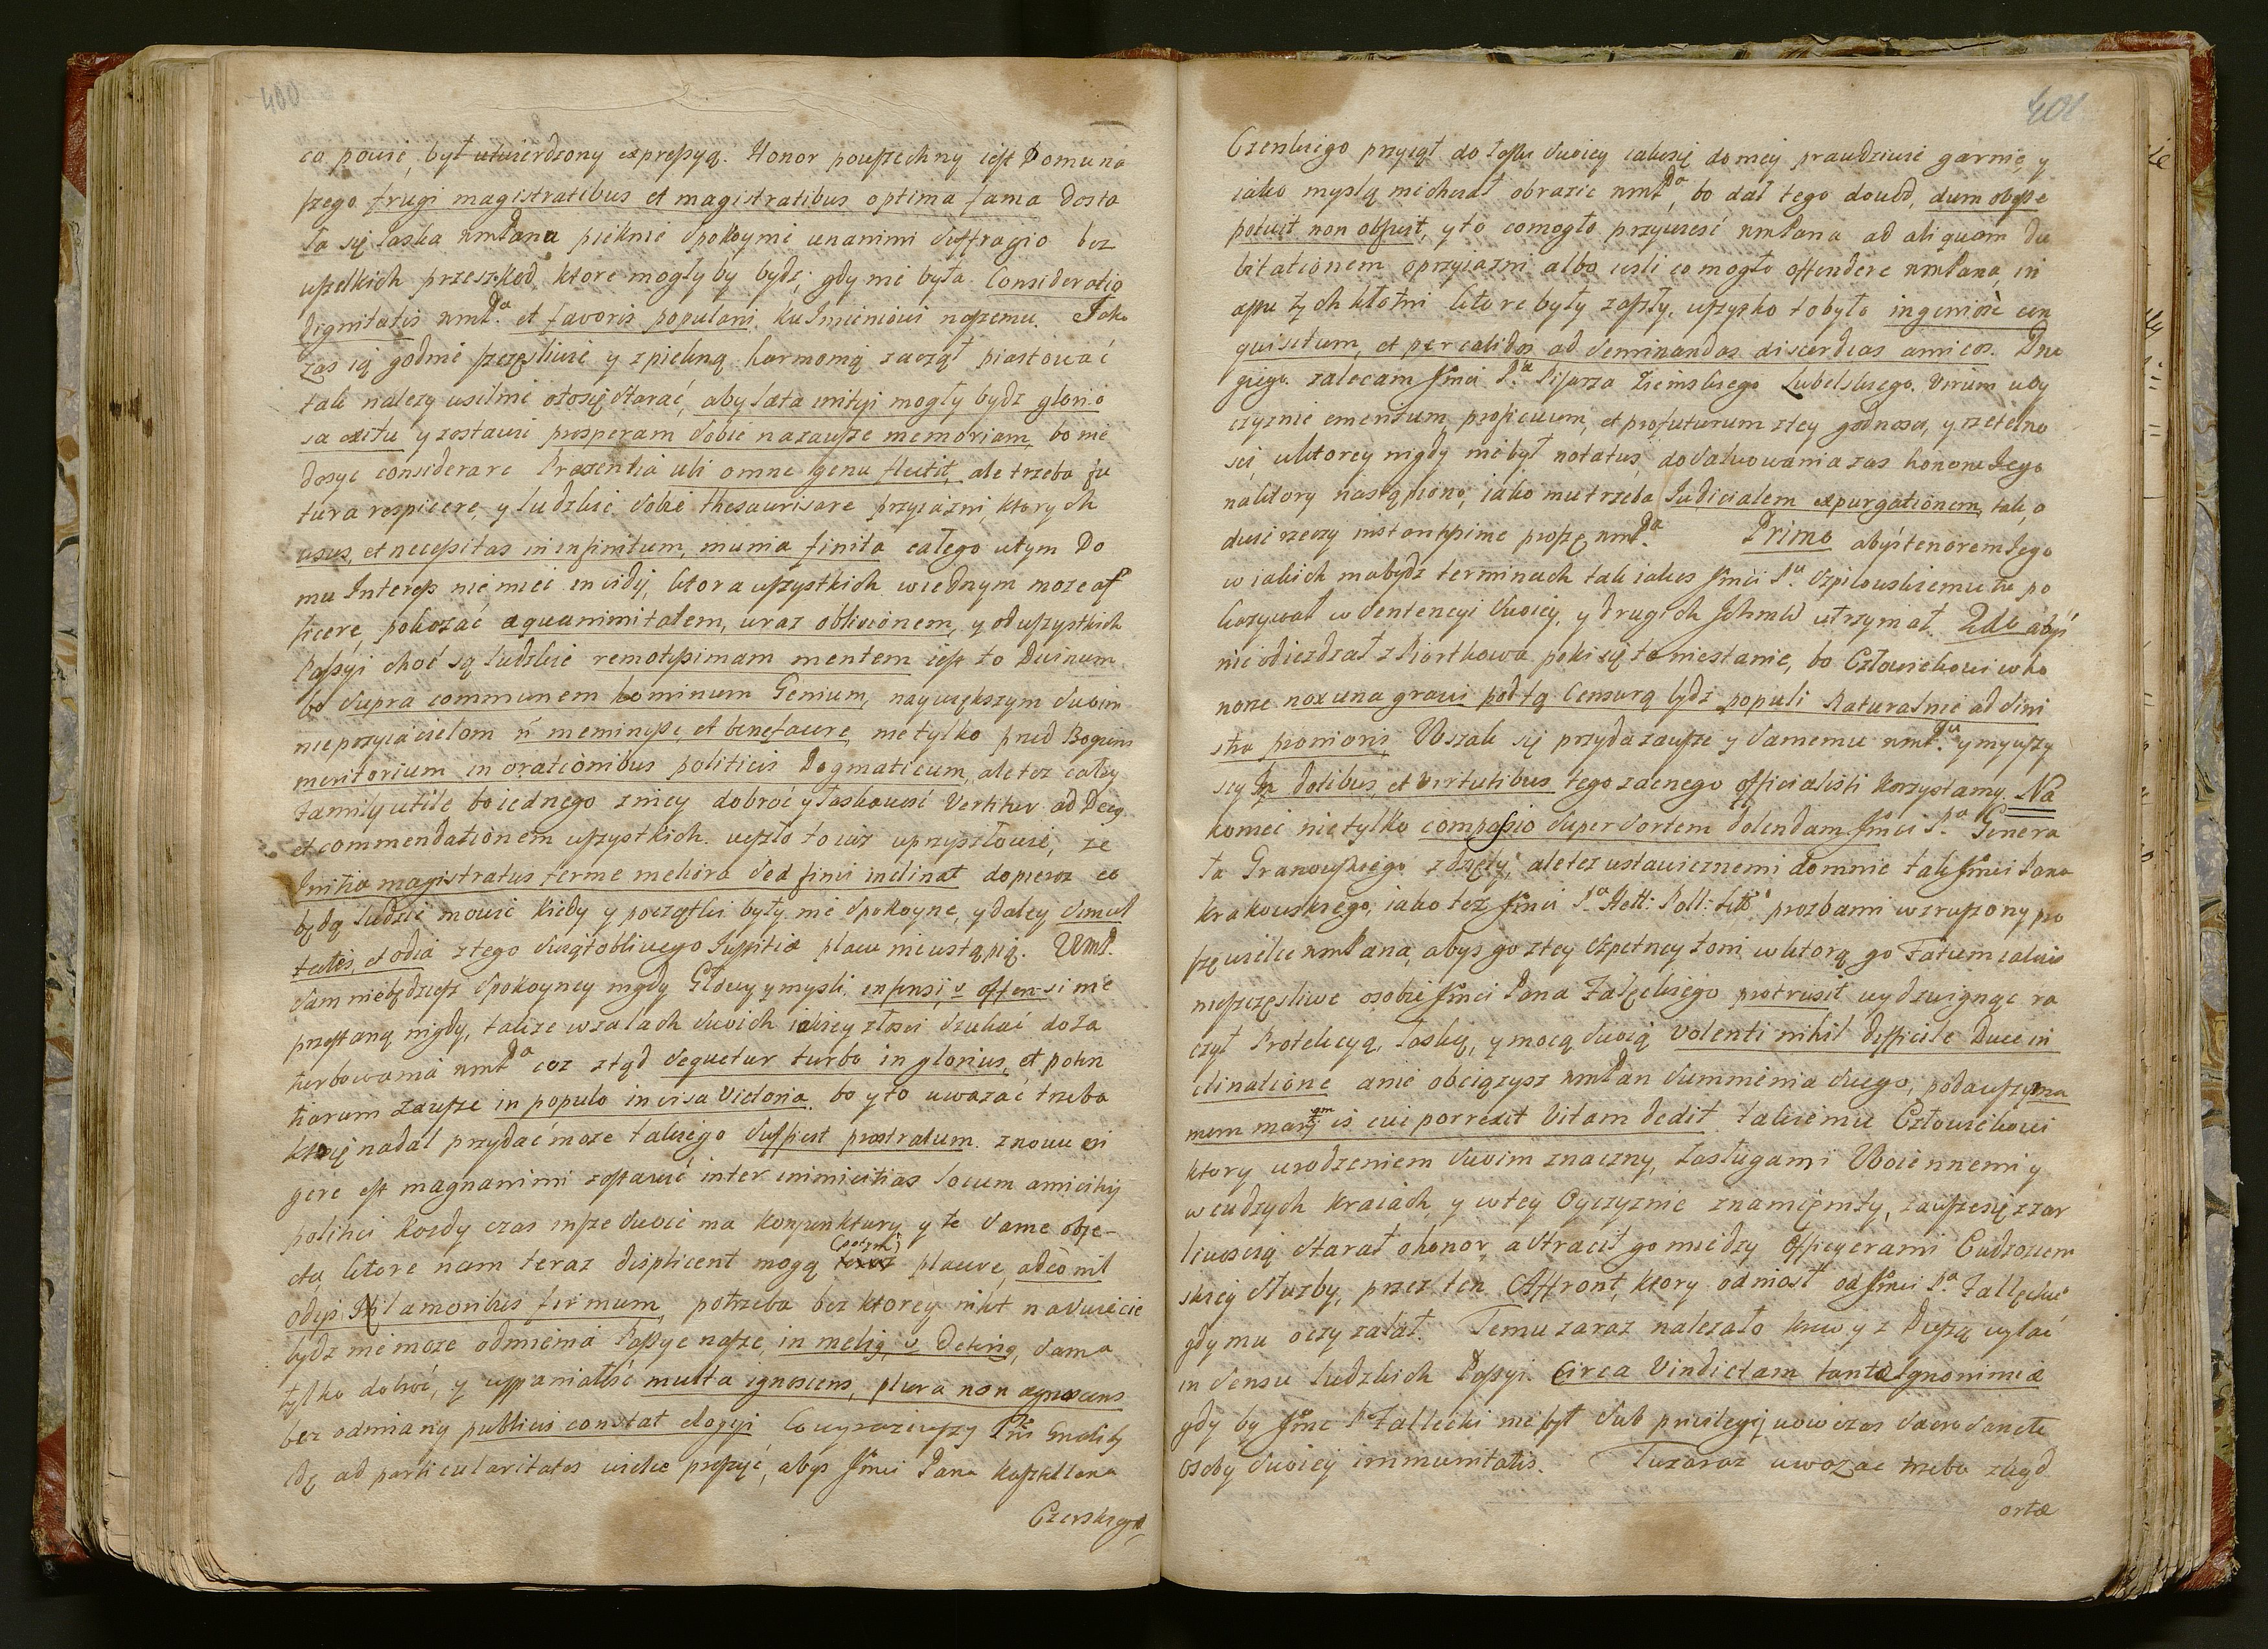 400
ca powie, był utwierdzony expressyą. Honor powszechny iest Domu na
szego frugi magistratibus et magistratibus optima fama dosta
ła się łaska wmPana pieknie spokoynie unanimi suffragio bez
wszelkich przeszkod, ktore mogły by bydz, gdy nie była Consideratio
Dignitatis wmPa. et favoris populani ku Imieniowi naszemu. Jako
zas ią godnie szczęsliwie y z piekną harmonią zaczął piastować
tak nalezy usilnie o to się starać, aby læta initiji mogły bydz glorio
sa exitu y zostawić prosperam sobie na zawsze memoriam, bo nie
dosyc considerare Præsentia ubi omne genu flectit, ale trzeba fu
tura respicere, y ludzkie sobie thesaurisare przyiazni, ktorych
usus, et necessitas in infinitum, munia finita całego w tym Do
mu Interess nie miec invidij, ktora wszystkich w iednym moze af
ficere, pokazać æquanimitatem, wraz oblivionem, y od wszystkich
Passyi choć są ludzkie remotissimam mentem iest to Divinum
bo supra communem hominum Genium, naywiększym swoim
nieprzyiacielom ñ meminisse, et benefacere, nie tylko przed Bogiem
meritorium in orationibus politicis Dogmaticum, ale tez całey
Familij utile bo iednego z niey dobroć y łaskawość Vertitur ad Decq.
et commendationem wszystkich. weszło to iuz w przysłowie, ze
Initia magistratus ferme meliora sed finis inclinat dopieroz co
będą ludzie mowić kiedy y początki były nie spokoyne, y daley simul
tates, et odia z tego swiątobliwego Justitiæ placu nie ustąpią. WmP.
sam niebędziesz spokoyney nigdy Głowy y mysli, infensi, v offensi nie
przestaną nigdy, takze w zalach swoich iakiey złosci szukać do za
turbowania wmPa coz ztąd sequetur turba in glorius, et poten
tiorum Zawsze in populo invisa Victoria. bo y to uwazać trzeba
kto się nadal przydać moze takiego suffecit prostratum. znowu eri
gere est magnanimi zostawić inter inimicitias locum amicitij
politici kozdy czas insze swoie ma konjunktury y te same obje-
cta ktore nam teraz displicent mogą (potym) placere, adeo nil
odijs Nil amoribus firmum, potrzeba bez ktorey nikt na swiecie
bydz nie moze odmienia Passye nasze, in melig, v Deterig, sama
tylko dobroć, y wspaniałość multa ignoscens, plura non agnoscens
bez odmiany publicis constat elogijs Co wyraziwszy Pris
Idę ad particularitates wielce proszyć, abys Jmci Pana Kasztellana
Czerskiego
401
Czerskiego przyiął do łaski swoiey iako się do niey prawdziwie garnie, y
iako myslą nie chciał obrazic wmPa, bo dał tego dowod, dum obesse
potuit non obfuit, y to co mogło przywiesć wmPana ad aliquam du
bitationem o przyiazni albo iesli co mogło offendere wmPana, in
assu tych kłotni ktore były zaszły. wszysko to było ingeniose con
quisitum, et per calidos ad seminandas discordias amicos. Dru
giego zalecam Jmci Pa. Pisarza Ziemskiego Lubelskiego. Virum w oy
czyznie emeritum, proficuum, et profuturum z tey godnosci, y rzetelno
sci, w ktorey nigdy nie był notatus, do salwowania zas honoru Jego
na ktory nastąpiono, iako mu trzeba Judicialem expurgationem, tak, o
dwie rzeczy instantissime proszę wmPa. Primo abys tenorem Jego
w iakich ma bydz terminach tak iakes Jmci Pu. Szpilowskiemu tu po
kazywał w sentencyi swoiey, y drugich Ichmść utrzymał. 2do abys
nie odiezdzał z Piotrkowa poki się to niestanie, bo Człowiekowi w ho
norze nox una gravis pod tą Censurą bydz populi Naturalnie ad sini
stra pronioris Wszak się przyda zawsze y samemu wmPu. y my wszy
scy In dotibus, et virtutibus tego zacnego officialisti korzystamy. Na
komec nie tylko compassio super sortem dolendam Jmci Pa. Genera
ła Granowskiego zdięty, ale tez ustawicznemi do mnie tak Jmci Pana
Krakowskiego, iako tez Jmci Pa. Hett: Poll: Litt: prozbami wzruszony pro
szę wielce wmPana, abys go z tey szpetney toni, w ktorą go Fatum iakies
nieszczęsliwe osobie Jmci Pana Załęckiego protrusit wydzwignąc ra
czył Protekcyą, łaską, y mocą swoią volenti nihil difficile Duce in
clinatione anie obciązysz wmPan summienia swego, podawszy ma
num manum is cui porrexit Vitam dedit takiemu Człowiekowi
ktory urodzeniem swoim znaczny, zasługami Woiennemi y
w cudzych kraiach, y w tey Oyczyznie znamięnity, zawsze się z zar
liwoscią starał o honor, a stracił go miedzy Officyerami Cudzoziem
skiey sluzby, przez ten Affront, ktory odniosł od Jmci Pa. Załłęckie
gdy mu oczy zalał. Temu zaraz nalezało krew y z Duszą wylać
in sensu ludzkich Passyi. Circa Vindictam tantæ Ignonimiæ
gdy by Jmc P. Załlecki nie był sub privilegij wowczas sacro sanctæ
osoby swoiey immunitatis. Tu zaraz uwazac trzeba zkąd
ortæ